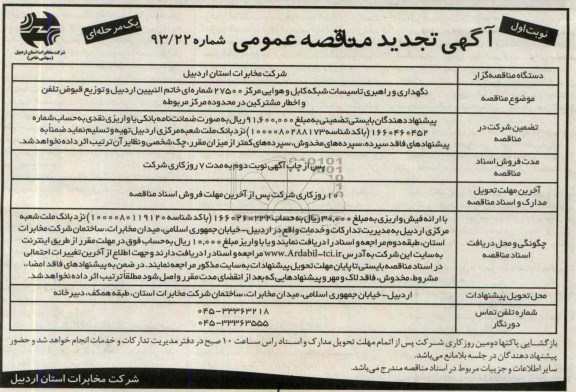 نوبت اول
یک مرحله ای
آگهی تجدید مناقصه عمومی شماره ۹۳/۲۲
شرکت مخابرات استان اردبیل
(سهامی خاص)
دستگاه مناقصه گزار
شرکت مخابرات استان اردبیل
موضوع مناقصه
نگهداری و راهبری تاسیسات شبکه کابل و هوایی مرکز ۲۷۵۰۰ شماره ای خاتم النبیین اردبیل و توزیع قبوض تلفن
و اخطار مشترکین در محدوده مرکز مربوطه
تضمین شرکت در
مناقصه
پیشنهاد دهندگان بایستی تضمینی به مبلغ ۹۱,۶۰۰,۰۰۰ ریال به صورت ضمانت نامه بانکی یا واریزی نقدی به حساب شماره
۱۶۶۰۴۶۰۴۵۲ (با کد شناسه ۱۰۰۰۰۸۰۲۸۸۱۷۳) نزد بانک ملت شعبه مرکزی اردبیل تهیه و تسلیم نماید ضمناً به
پیشنهادهای فاقد سپرده، سپرده های مخدوش، سپرده های کمتر از میزان مقرر، چک شخصی و نظایر آن ترتیب اثر داده نخواهد شد.
مدت فروش اسناد
مناقصه
پس از چاپ آگهی نوبت دوم به مدت ۷ روز کاری شرکت
آخرین مهلت تحویل
مدارک و اسناد مناقصه
۱۰ روز کاری شرکت پس از آخرین مهلت فروش اسناد مناقصه
چگونگی و محل دریافت
اسناد مناقصه
با ارائه فیش واریزی به مبلغ ۳۰,۰۰۰ ریال به حساب ۱۶۶۰۲۶۰۲۳۲ (با کد شناسه ۱۰۰۰۰۸۰۱۱۹۱۲۰) نزد بانک ملت شعبه
مرکزی اردبیل به مدیریت تدارکات و خدمات واقع در اردبیل-خیابان جمهوری اسلامی، میدان مخابرات، ساختمان شرکت مخابرات
استان، طبقه دوم مراجعه و اسناد را دریافت نمایند و یا با واریز مبلغ ۱۰,۰۰۰ ریال به حساب فوق در مهلت مقرر از طریق اینترنت
به سایت این شرکت به آدرس www.Ardabil-tci.ir مراجعه و اسناد را دریافت دارند و جهت اطلاع از آخرین تغییرات احتمالی
در اسناد مناقصه بایستی تا پایان مهلت تحویل پیشنهادات به سایت مذکور مراجعه نمایند. در ضمن به پیشنهادهای فاقد امضاء،
مشروط، مخدوش، فاقد لاک و مهر و پیشنهادهایی که بعد از انقضای مدت مقرر واصل شود مطلقاً ترتیب اثر داده نخواهد شد.
محل تحویل پیشنهادات
اردبیل- خیابان جمهوری اسلامی، میدان مخابرات، ساختمان شرکت مخابرات استان، طبقه همکف، دبیرخانه
شماره تلفن تماس
دورنگار
۰۴۵-۳۳۳۶۳۲۱۸
۰۴۵-۳۳۳۶۳۵۵۵
بازگشایی پاکتها دومین روز کاری شرکت پس از اتمام مهلت تحویل مدارک و اسناد راس ساعت ۱۰ صبح در دفتر مدیریت تدارکات و خدمات انجام خواهد شد و حضور
پیشنهاد دهندگان در جلسه بلامانع می باشد.
سایر اطلاعات و جزییات مربوط در اسناد مناقصه مندرج می باشد.
شرکت مخابرات استان اردبیل